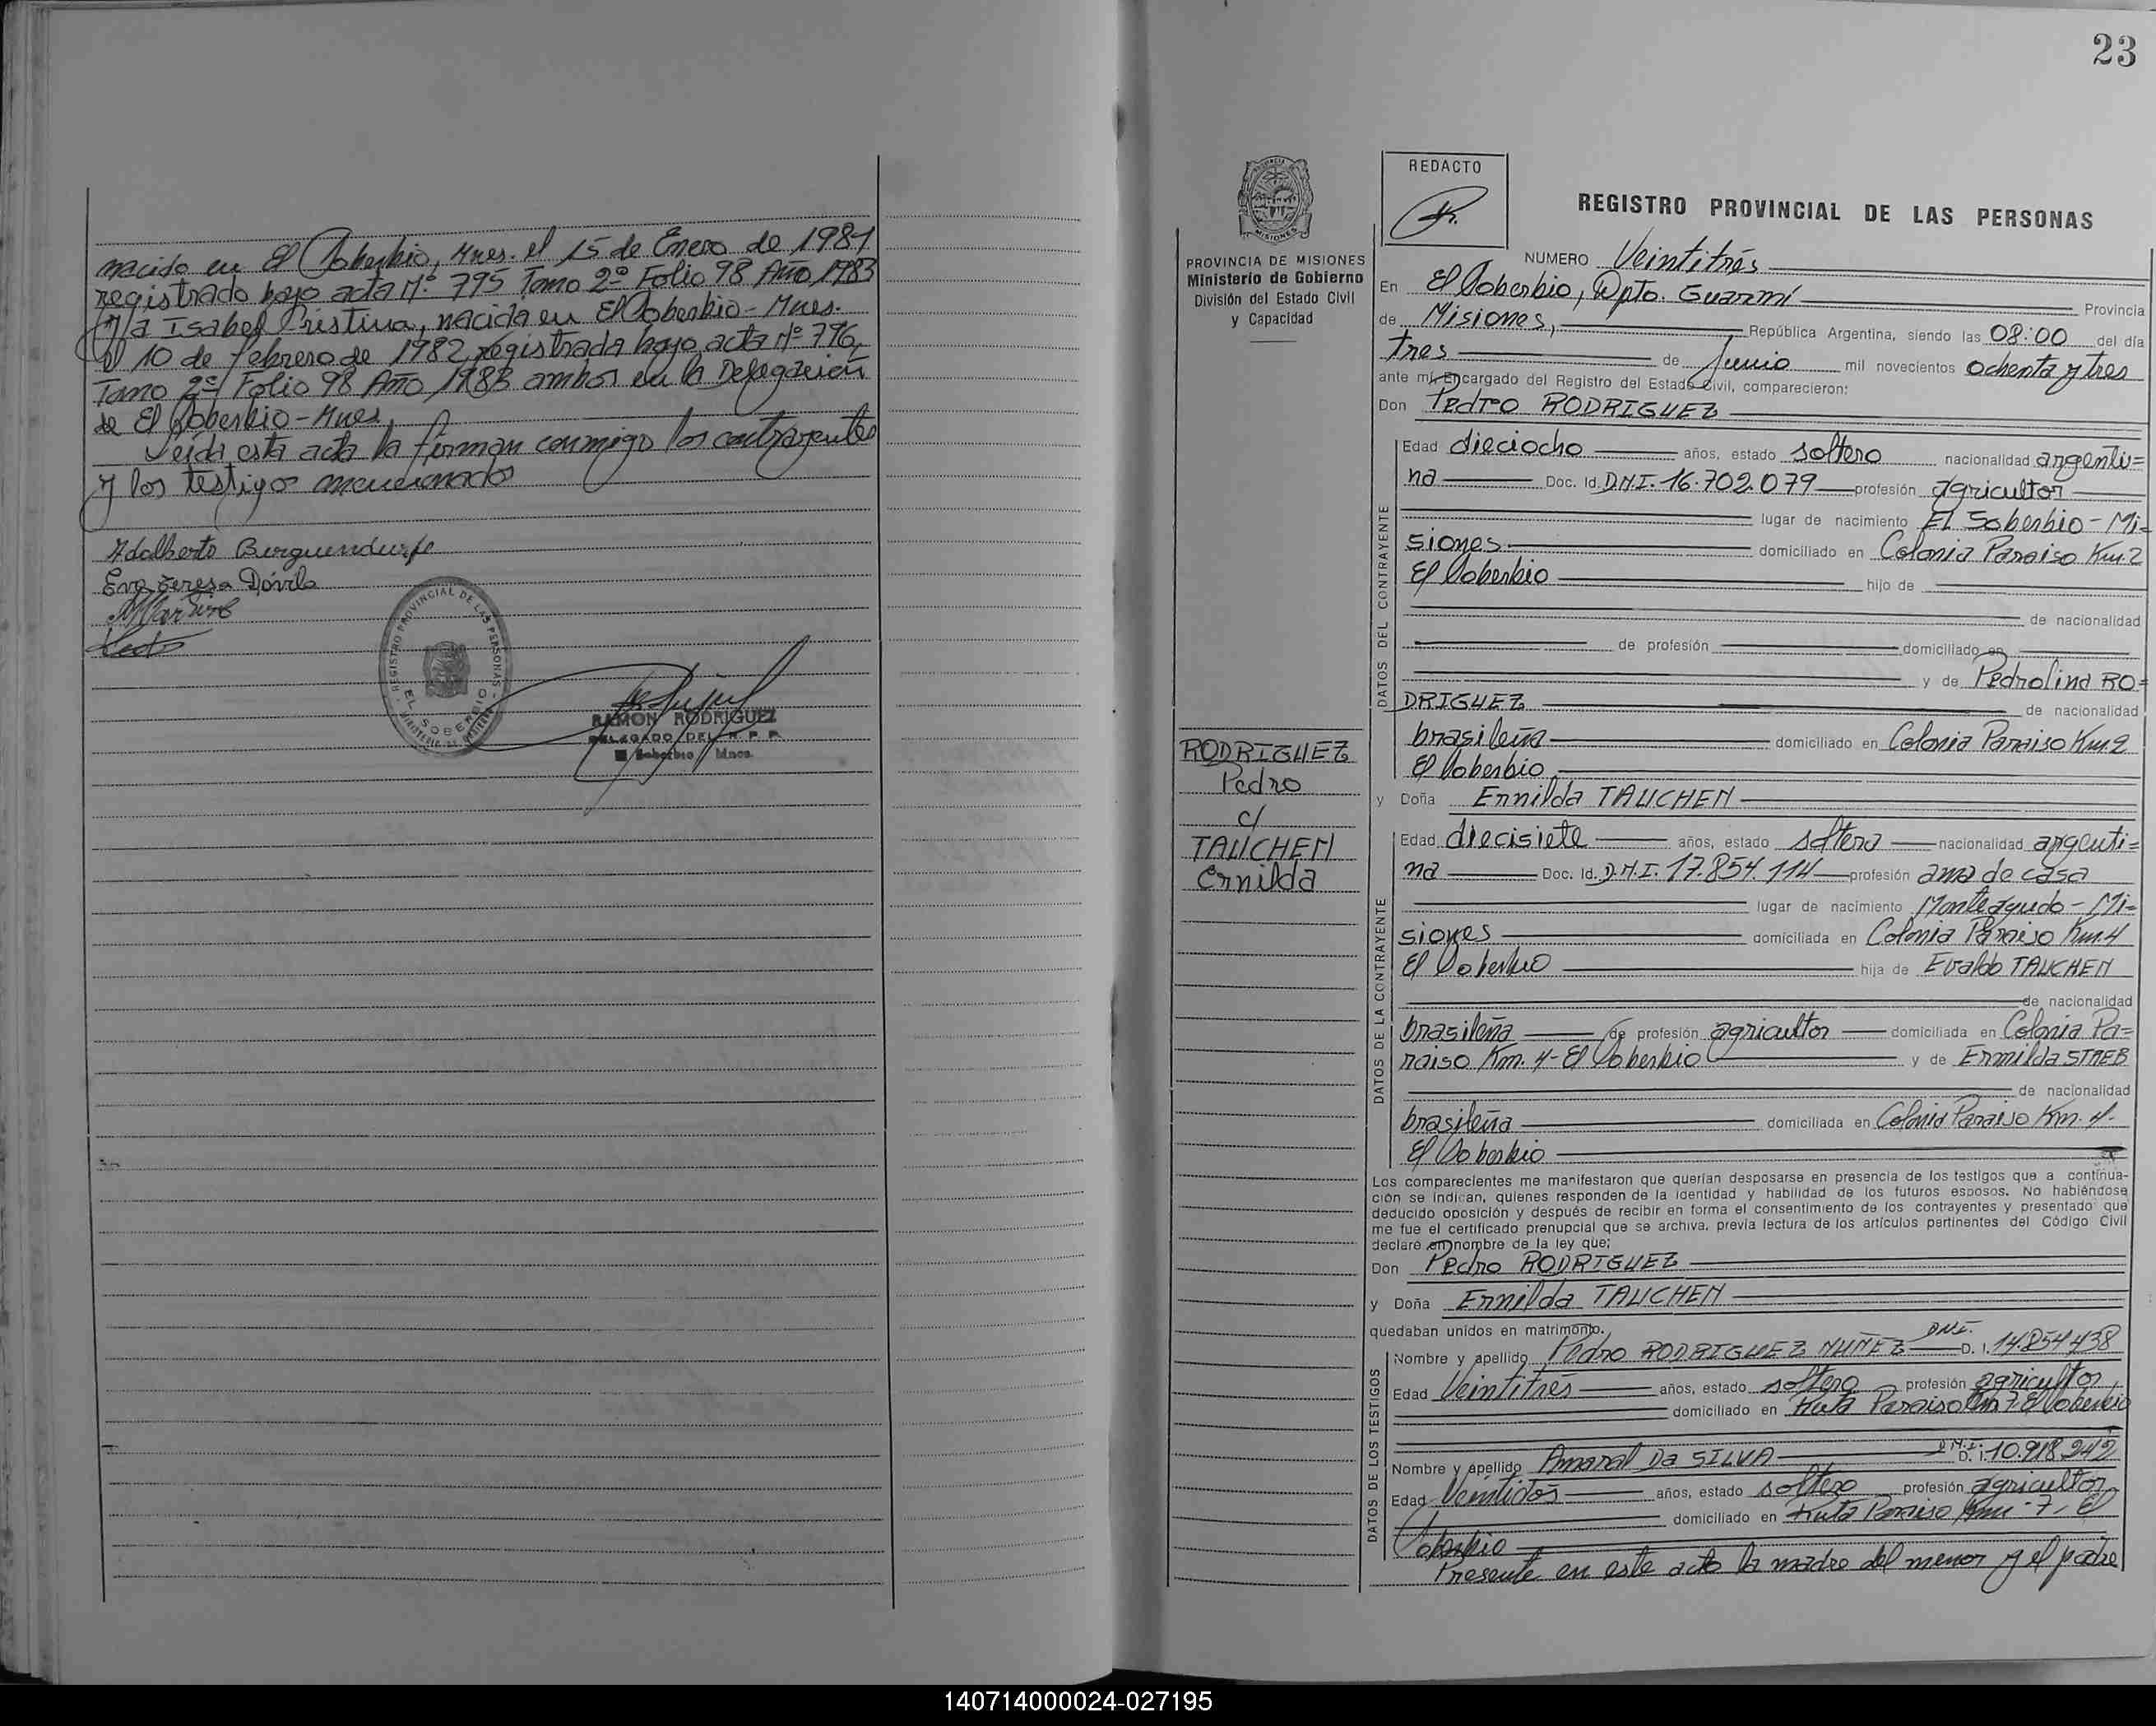 nacido en El Soberbio, Mnes. el 15 de Enero de 1981
registrado bajo acta Nº 795 Tomo 2º Folio 98 Año 1983
y a Isabel Cristina, nacida en El Soberbio - Mnes.
el 10 de febrero de 1982 registrada bajo acta Nº 796,
Tomo 2º Folio 98 Año 1983 ambos en la Delegación
de El Soberbio - Mnes.
Leída esta acta la firman conmigo los contrayentes
y los testigos mencionados
Adalberto
Eva Teresa Dóvila
REGISTRO PROVINCIAL DE LAS PERSONAS
EL SOBERBIO
RAMON RODRIGUEZ
DELEGADO DEL R. P. P.
El Soberbio Mnes.
23
PROVINCIA DE MISIONES
Ministerio de Gobierno
División del Estado Civil
y Capacidad
RODRIGUEZ
Pedro
c/
TAUCHEN
Ernilda
REDACTO
REGISTRO PROVINCIAL DE LAS PERSONAS
NUMERO Veintitrés
En El Soberbio, Dpto. Guaraní Provincia
de Misiones, República Argentina, siendo las 08:00 del día
tres de Junio mil novecientos ochenta y tres
ante mí, Encargado del Registro del Estado Civil, comparecieron:
Don Pedro RODRIGUEZ
DATOS DEL CONTRAYENTE
Edad dieciocho años, estado soltero nacionalidad argenti=
na Doc. Id. DNI. 16.702.079 profesión agricultor
lugar de nacimiento El Soberbio - Mi=
siones. domiciliado en Colonia Paraiso Km. 2
El Soberbio hijo de
de nacionalidad
de profesión domiciliado en
y de Pedrolina RO=
DRIGUEZ de nacionalidad
brasileña domiciliado en Colonia Paraiso Km. 2
El Soberbio
y Doña Ernilda TAUCHEN
DATOS DE LA CONTRAYENTE
Edad diecisiete años, estado soltera nacionalidad argenti=
na Doc. Id. D.N.I. 17.854.114 profesión ama de casa
lugar de nacimiento Monteagudo - Mi=
siones domiciliada en Colonia Paraiso Km. 4
El Soberbio hija de Evaldo TAUCHEN
de nacionalidad
brasileña de profesión agricultor domiciliada en Colonia Pa=
raiso Km. 4 - El Soberbio y de Ermilda STREB
de nacionalidad
brasileña domiciliada en Colonia Paraiso Km. 4-
El Soberbio
Los comparecientes me manifestaron que querían desposarse en presencia de los testigos que a continua-
ción se indican, quienes responden de la identidad y habilidad de los futuros esposos. No habiéndose
deducido oposición y después de recibir en forma el consentimiento de los contrayentes y presentado que
me fue el certificado prenupcial que se archiva, previa lectura de los artículos pertinentes del Código Civil
declaré en nombre de la ley que:
Don Pedro RODRIGUEZ
y Doña Ernilda TAUCHEN
quedaban unidos en matrimonio.
DATOS DE LOS TESTIGOS
Nombre y apellido Pedro RODRIGUEZ NUÑEZ DNI. D. I. 14.854.438
Edad Veintitrés años, estado soltero profesión agricultor
domiciliado en Ruta Paraiso Km 7 El Soberbio
Nombre y apellido Amaral Da SILVA D.N.I. D. I. 10.918.242
Edad Veintidos años, estado soltero profesión agricultor
domiciliado en Ruta Paraiso Km. 7, El
Soberbio
Presente en este acto la madre del menor y el padre
140714000024-027195